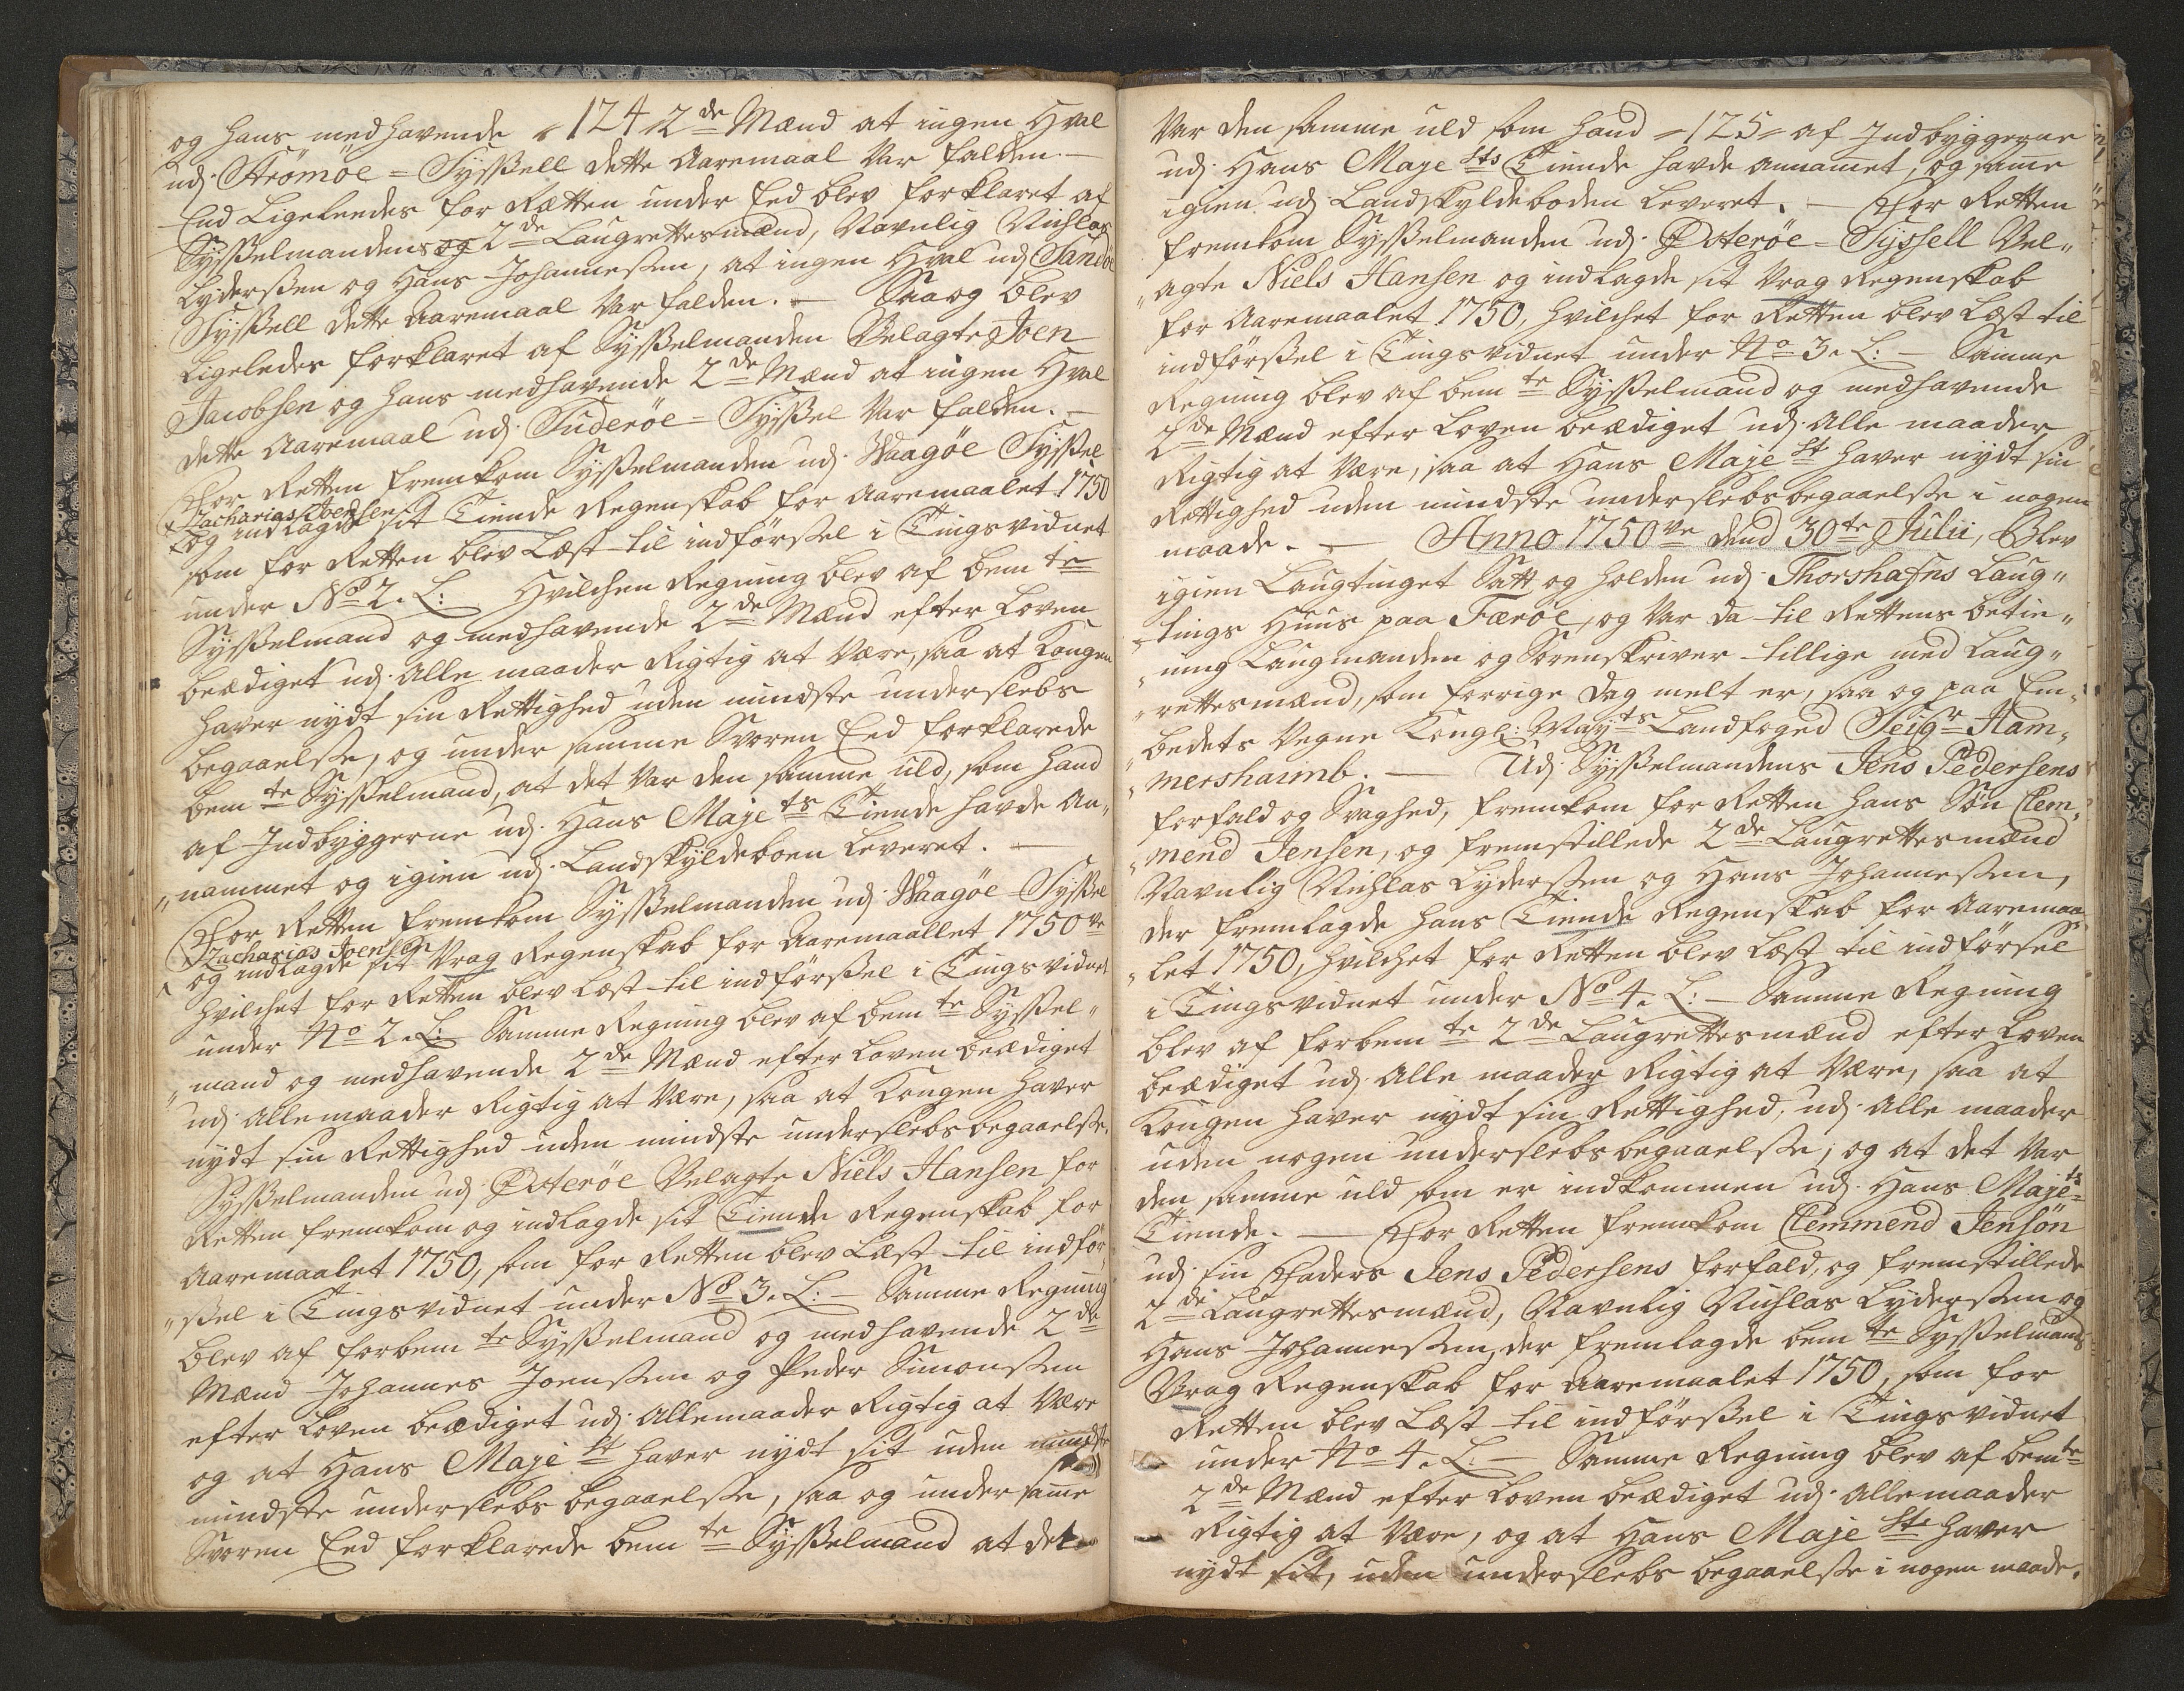 og hans medhavende 124 2de Mænd at ingen Hval
udj Strömöe=Sysßell dette Aaremaal var falden. —
End Ligeleedes for Rætten under Eed blev forklaret af
Sysßelmandens og 2de Laugrettesmænd, Navnlig Nichlas
Lydersßen og Hans Johannesßen, at ingen Hval udj Sandöe
Sysßell dette Aaremaal var falden. — Saa og blev
Ligeledes forklaret af Sysßelmanden Velagte Joen
Jacobsen og hans medhavende 2de Mænd at ingen Hval
dette Aaremaal udj Suderöe=Sysßel var falden. —
For Retten fremkom Sysßelmanden udj Waagöe Sysßel
Zacharias Joensen
og indlagde sit Tiende Regenskab for Aaremaalet 1750
som for Retten blev Læst til indförsßel i Tingsvidnet
under No 2. L: Hvilchen Regning blev af bemte
Sysßelmand og medhavende 2de Mænd efter Loven
beædiget udj alle maader Rigtig at være, saa at Kongen
haver nydt sin Rettighed uden mindste underslebs
begaaelsße, og under samme Svoren Eed forklarede
bemte Sysßelmand, at det var den samme uld, som hand
af Indbyggerne udj Hans Majets Tiende havde An„
„nammet og igien udj Landskyldeboen leveret. —
For Retten fremkom Sysßelmanden udj Waagöe Sysßel
Zacharias Joensen
og indlagde sit Vrag Regenskab for Aaremaallet 1750ve
hvilchet for Retten blev læst til indförsßel i Tingsvidnet
under No 2. L: Samme Regning blev af bemte Sysßel„
„mand og medhavende 2de Mænd efter Loven beædiget
udj alle maader Rigtig at være, saa at Kongen haver
nydt sin Rettighed uden mindste underslebs begaaelsße.
Sysßelmanden udj Osteröe Velagte Niels Hansen for
Retten fremkom og indlagde sit Tiende Regenskab for
Aaremaalet 1750, som for Retten blev Læst til indför„
„sßel i Tingsvidnet under No 3. L: — Samme Regning
blev af forbemte Sysßelmand og medhavende 2de
Mænd Johannes Joensßen og Peder Simonsßen
efter Loven beædiget udj alle maader Rigtig at være
og at Hans Majest haver nydt sit uden
mindste underslebs begaaelsße, saa og under samme
Svoren Eed forklarede bemte Sysßelmand at det
Var den samme uld som hand =125= af Indbyggerne
udj Hans Majests Tiende havde annamet, og samme
igien udj Landskyldeboden leveret. — For Retten
fremkom Sysßelmanden udj Osteröe=Syssell Vel„
„agte Niels Hansen og indlagde sit Vrag Regenskab
for Aaremaalet 1750, hvilchet for Retten blev Læst til
indförsßel i Tingsvidnet under No 3. L: — Samme
Regning blev af bemte Sysßelmand og medhavende
2de Mænd efter Loven beædiget udj alle maader
Rigtig at være, saa at Hans Majest haver nydt sin
Rettighed uden mindste underslebs begaaelsße i nogen
maade. — Anno 1750ve dend 30te Julii, Blev
igien Laugtinget Satt og holden udj Thorshafns Laug„
„tings Huus paa Færöe, og var da til Rettens betie„
„ning Laugmanden og Sorenskriver tillige med Laug„
„rettesmænd, som forrige dag melt er, saa og paa Em„
„bedets Vegne Kongl: Mayts Landfoged Seigr Ham„
„mershaimb. — Udj Sysßelmandens Jens Pedersens
forfald og Svaghed, fremkom for Retten hans Sön Clem„
„mend Jensen, og fremstillede 2de Laugrettesmænd
Navnlig Nichlas Lydersßen og Hans Johannesßen,
der fremlagde hans Tiende Regenskab for Aaremaa„
„let 1750, hvilchet for Retten blev Læst til indförsel
i Tingsvidnet under No 4. L: — Samme Regning
blev af forbemte 2de Laugrettesmænd efter Loven
beædiget udj alle maader Rigtig at være, saa at
Kongen haver nydt sin Rettighed, udj alle maader
uden nogen underslebs begaaelsße, og at det var
den samme uld som er indkommen udj Hans Majets
Tiende. — For Retten fremkom Clemmend Jensön
udj sin Faders Jens Pedersens forfald, og fremstillede
2de Laugrettesmænd, Navnlig Nichlas Lydersßen og
Hans Johannesßen, der fremlagde bemte Sysßelmands
Vrag Regenskab for Aaremaalet 1750, som for
Retten blev Læst til indförsßel i Tingsvidnet
under No 4. L. — Samme Regning blev af bemte
2de Mænd efter Loven beædiget udj alle maader
Rigtig at være, og at Hans Majest haver
nydt sit, uden underslebs begaaelsße i nogen maade.